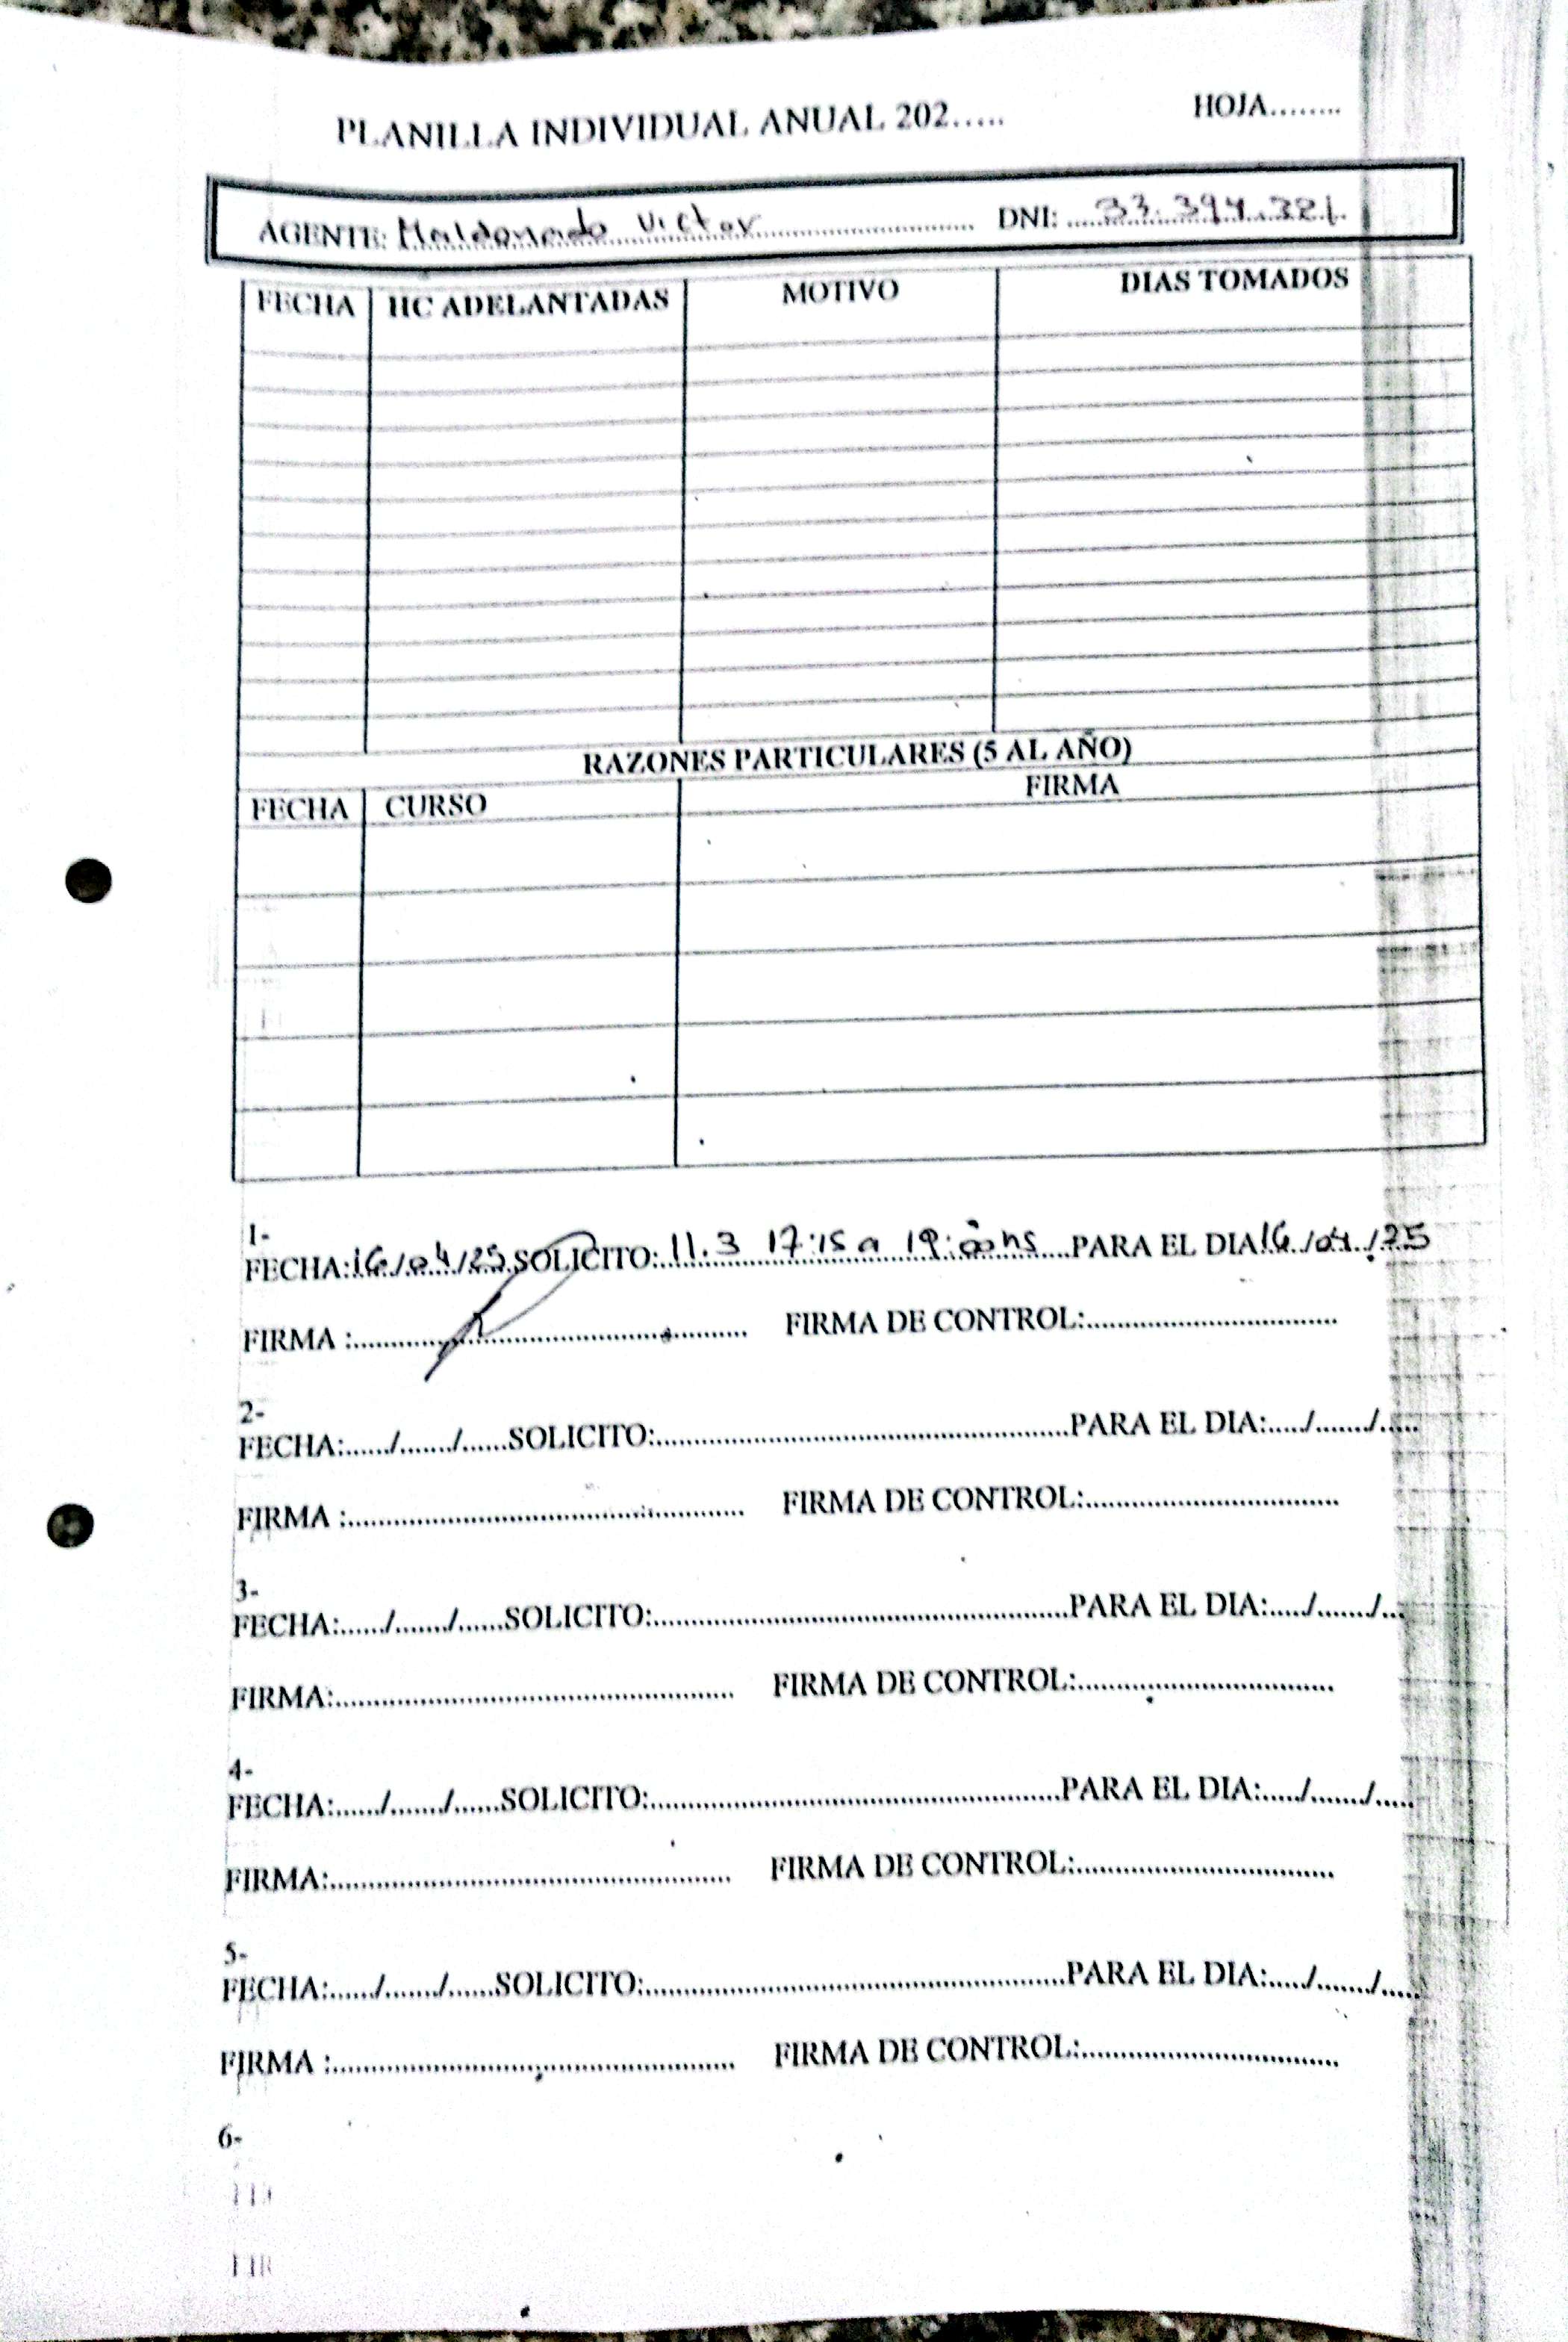 PLANILLA INDIVIDUAL ANUAL 202..... HOJA........
AGENTE: Maldonado Victor DNI: 33.394.321
FECHA HC ADELANTADAS MOTIVO DIAS TOMADOS
RAZONES PARTICULARES (5 AL AÑO)
FECHA CURSO FIRMA
1-
FECHA: 16/04/25 SOLICITO: 11.3 17:15 a 19:00hs PARA EL DIA 16/04/25
FIRMA : FIRMA DE CONTROL:
2-
FECHA:....../......./......SOLICITO: PARA EL DIA:...../......./.....
FIRMA : FIRMA DE CONTROL:
3-
FECHA:....../......./......SOLICITO: PARA EL DIA:...../......./...
FIRMA: FIRMA DE CONTROL:
4-
FECHA:....../......./......SOLICITO: PARA EL DIA:...../......./.....
FIRMA: FIRMA DE CONTROL:
5-
FECHA:....../......./......SOLICITO: PARA EL DIA:...../......./.....
FIRMA : FIRMA DE CONTROL:
6-